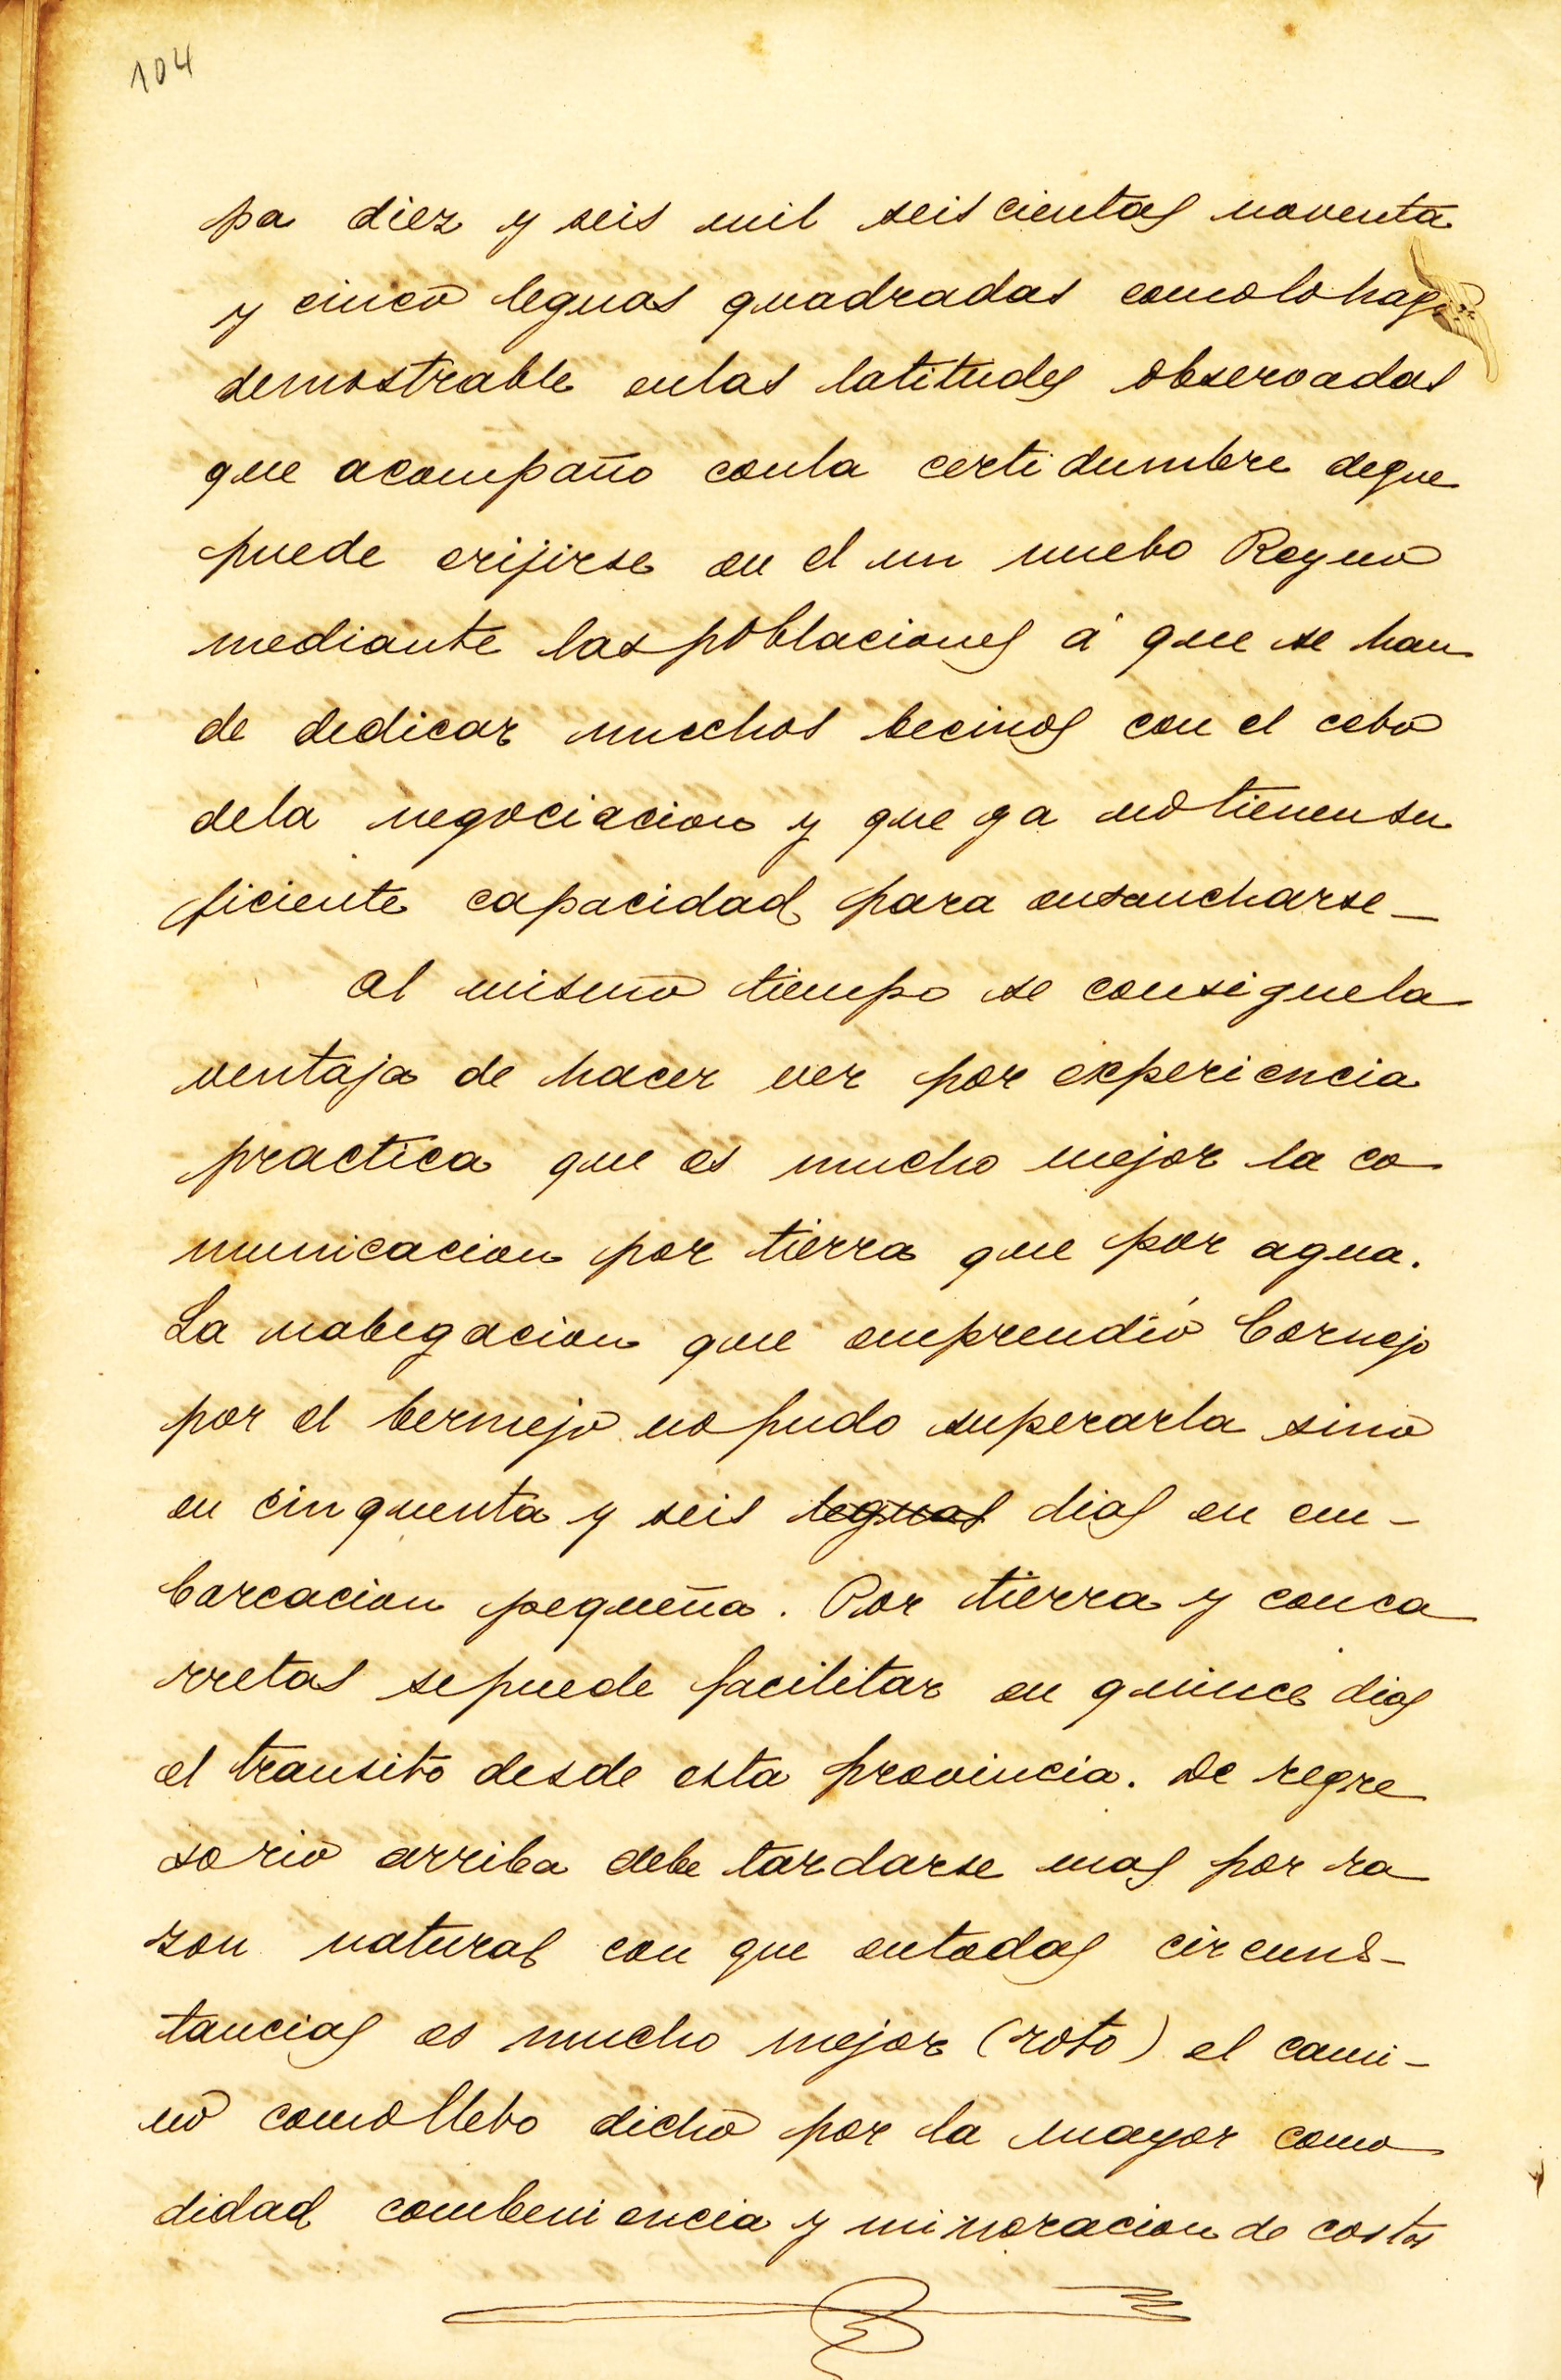 104
pa diez y seis mil seiscientas noventa
y cinco leguas quadradas comolo hago
demostrable enlas latitudes observadas
que acompaño conla certidumbre deque
puede erijirse en el un nuebo Reyno
mediante las poblaciones á que se han
de dedicar muchos becinos con el cebo
dela negociacion y que ya no tienen su
ficiente capacidad para ensancharse—
Al mismo tiempo se consigue la
ventaja de hacer ver por experiencia
practica que es mucho mejor la co
municacion por tierra que por agua.
La nabegacion que emprendió Cornejo
por el bermejo no pudo superarla sino
en cinquenta y seis leguas dias en em-
barcacion pequeña. Por tierra y conca
rretas sepuede facilitar en quince dias
el transito desde esta provincia. De regre
so rio arriba debe tardarse mas por ra
zon natural con que entodas circuns-
tancias es mucho mejor (roto) el cami-
no como llebo dicho por la mayor como
didad combeniencia y minoracion de costos